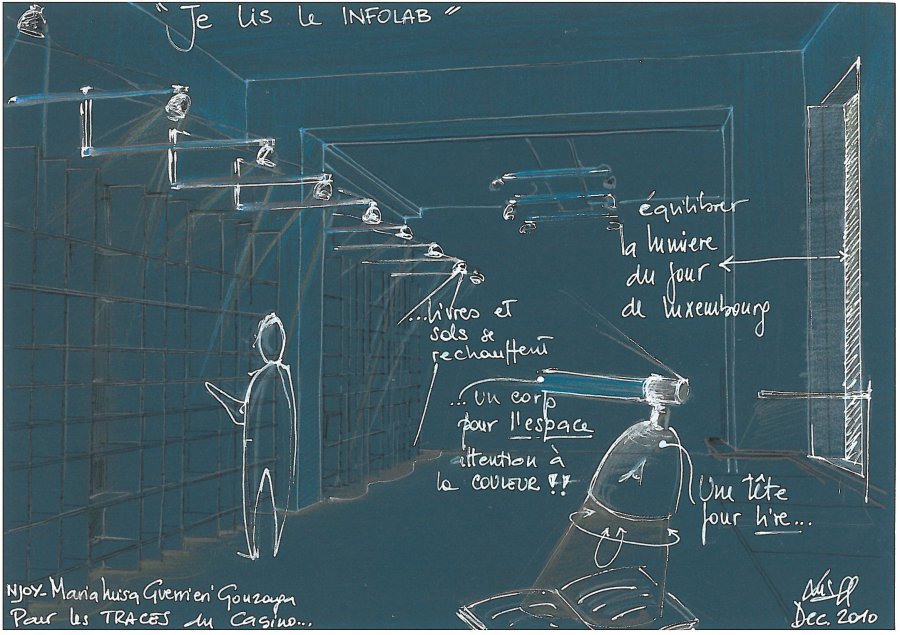 "Je lis le INFOLAB"
équilibrer
la lumiere
du jour
de luxembourg
...livres et
sols se
rechauffent
... un corp
pour l'espace
attention à
la COULEUR !!
Une tête
pour lire...
NJOY - Marialuisa Guerrieri Gonzaga
Pour les TRACES du Casino...
Dec. 2010